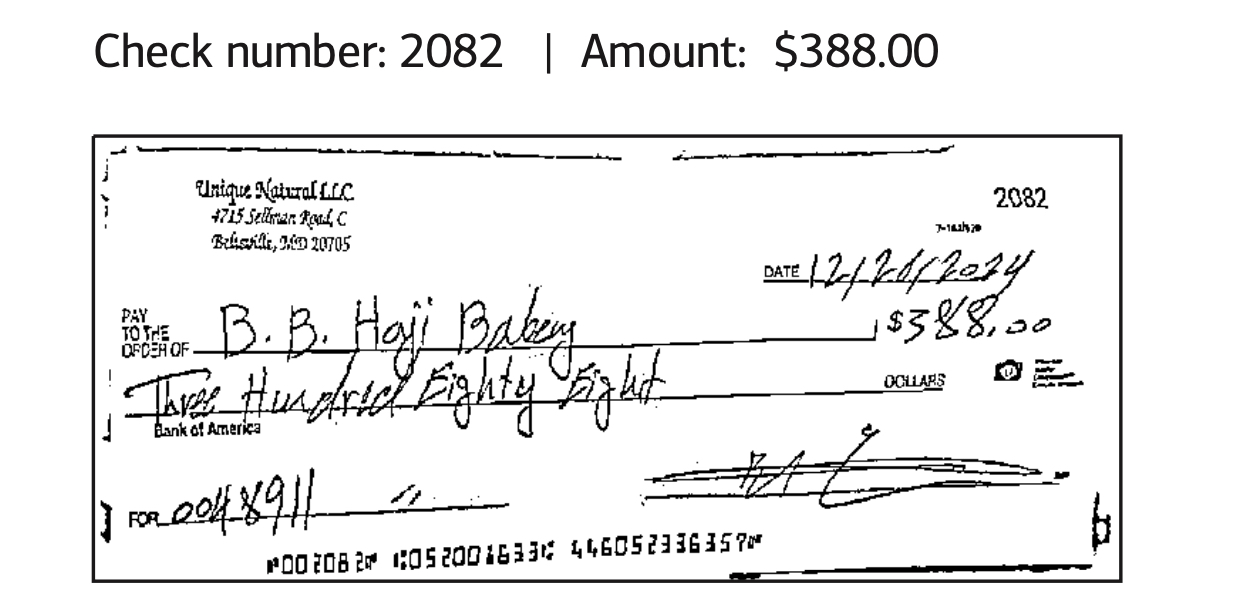 Check number: 2082 | Amount: $388.00
Unique Natural LLC
4715 Sellman Road, C
Beltsville, MD 20705
2082
DATE 12/21/2024
PAY
TO THE
ORDER OF B. B. Haji Babey
$388.00
Three Hundred Eighty Eight DOLLARS
Bank of America
FOR 0048911
002082 052001633 446052336357